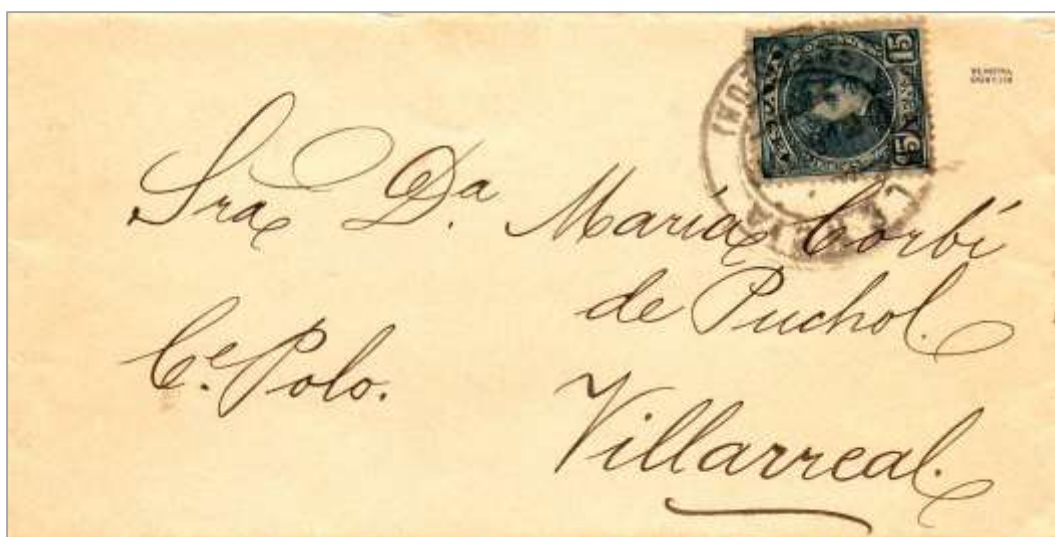 15 15
Sra Dª. María Corbí
de Puchol.
Cᵉ. Polo.
Villarreal.